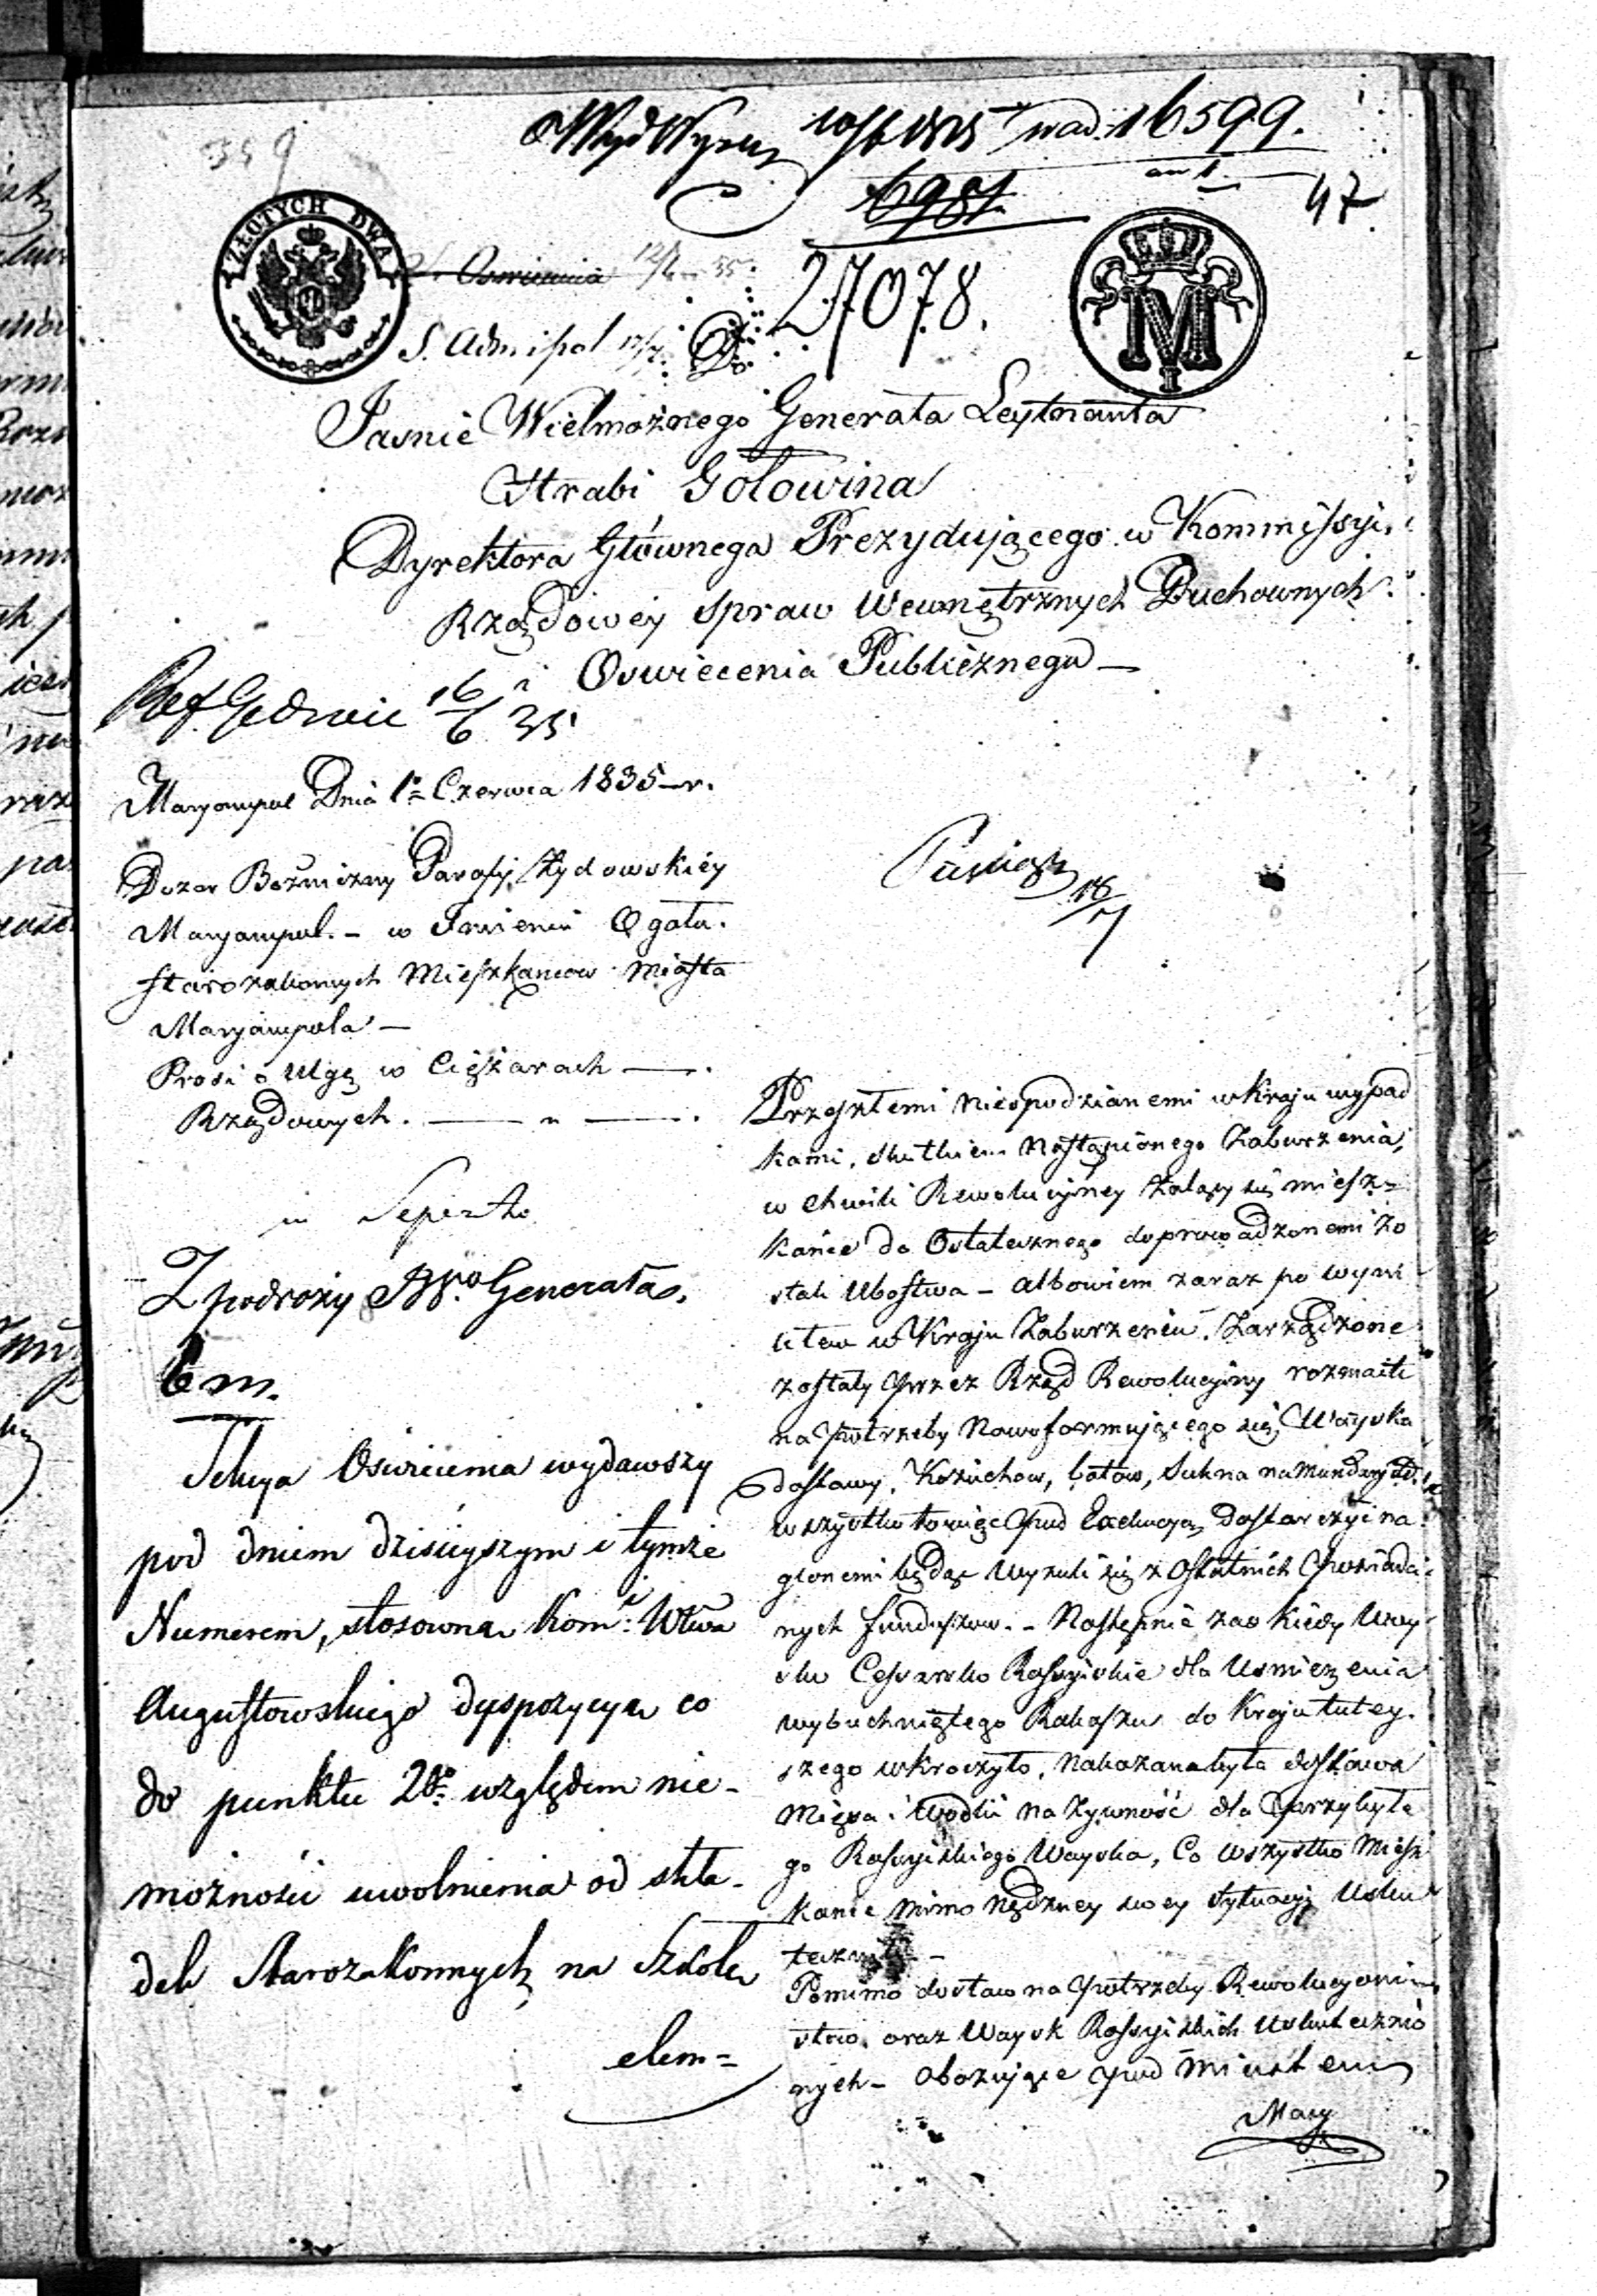 359
Wyd Wyzn nad. 16599.
an 1.
6981.
47
ZŁOTYCH DWA
Oswiecenia 12/6 35
27078.
S. Adm i pol 12/7.
M
I
Jasnie Wielmożnego Generała Leytnanta
Hrabi Gołowina
Dyrektora Głównego Prezydującego w Kommissyi
Rządowey Spraw Wewnętrznych Duchownych
i Oswiecenia Publicznego —
Ref. 16/6 35
Maryampol Dnia 1º Czerwca 1835 r.
Dozor Bożniczny Parafij Żydowskiey
Maryampol. – w Imieniu Ogału
Starozakonnych Mieszkancow Miasta
Maryampola —
Prosi o Ulgę w Ciężarach —.
Rządowych. — " —.
18/7
Z podroży JWgo Generała.
6 m.
Sekcya Oswiecenia wydawszy
pod dniem dzisieyszym i tymże
Numerem, stosowną Komi: Wtwa
Augustowskiego dyspozycyą co
do punktu 2do względem nie-
możności uwolnienia od skła-
dek Starozakonnych na Szkołę
elem=
Przeszłemi niespodzianemi w Kraju wypad
kami, skutkiem Nastąpionego Zaburzenia,
w chwili Rewolucyiney Żalący się miesz-
kańce do Ostatecznego doprowadzonemi zo
stali Ubostwa – albowiem zaraz po wyni
kłem w Kraju Zaburzeniu. Zarządzone
zostały przez Rząd Rewolucyiny rozmaite
na potrzeby Nowoformującego się Woyska
dostawy, Kożuchow, botow, Sukna na Mundury etc.
wszystko to więc pod Exekucyą dostarczyć na
glonemi będąc wyzuli się z Ostatnich posiada
nych funduszow. – Następnie zaś kiedy Woy
sko Cesarsko Rossyiskie dla Usmierzenia
wybuchniętego Rokoszu do Kraju tutey-
szego wkroczyło, Nakazana była dostawa
Mięsa i Wodki na Żywność dla przybyłe
go Rossyiskiego Woyska, Co wszystko Miesz
kance mimo Nędzney swey sytuacyi Usku
teczn
Pomimo dostaw na potrzeby Rewolucyoni
stow, oraz Woysk Rossyiskich Uskutecznio
nych – obozujące pod Miastem
Mary